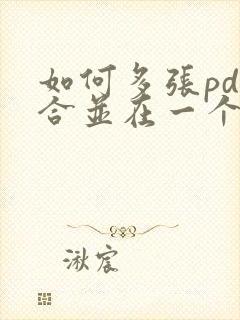 如何多張pd
合並在一个
湫宸